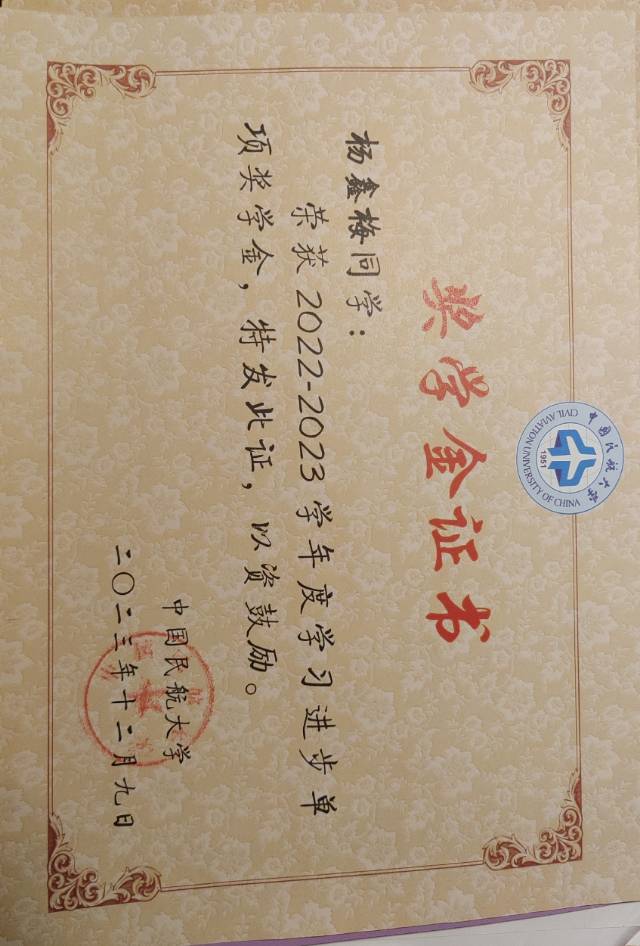 中国民航大学
CIVIL AVIATION UNIVERSITY OF CHINA
1951
奖学金证书
杨鑫梅同学：
荣获2022-2023学年度学习进步单
项奖学金，特发此证，以资鼓励。
中国民航大学
二〇二三年十二月九日